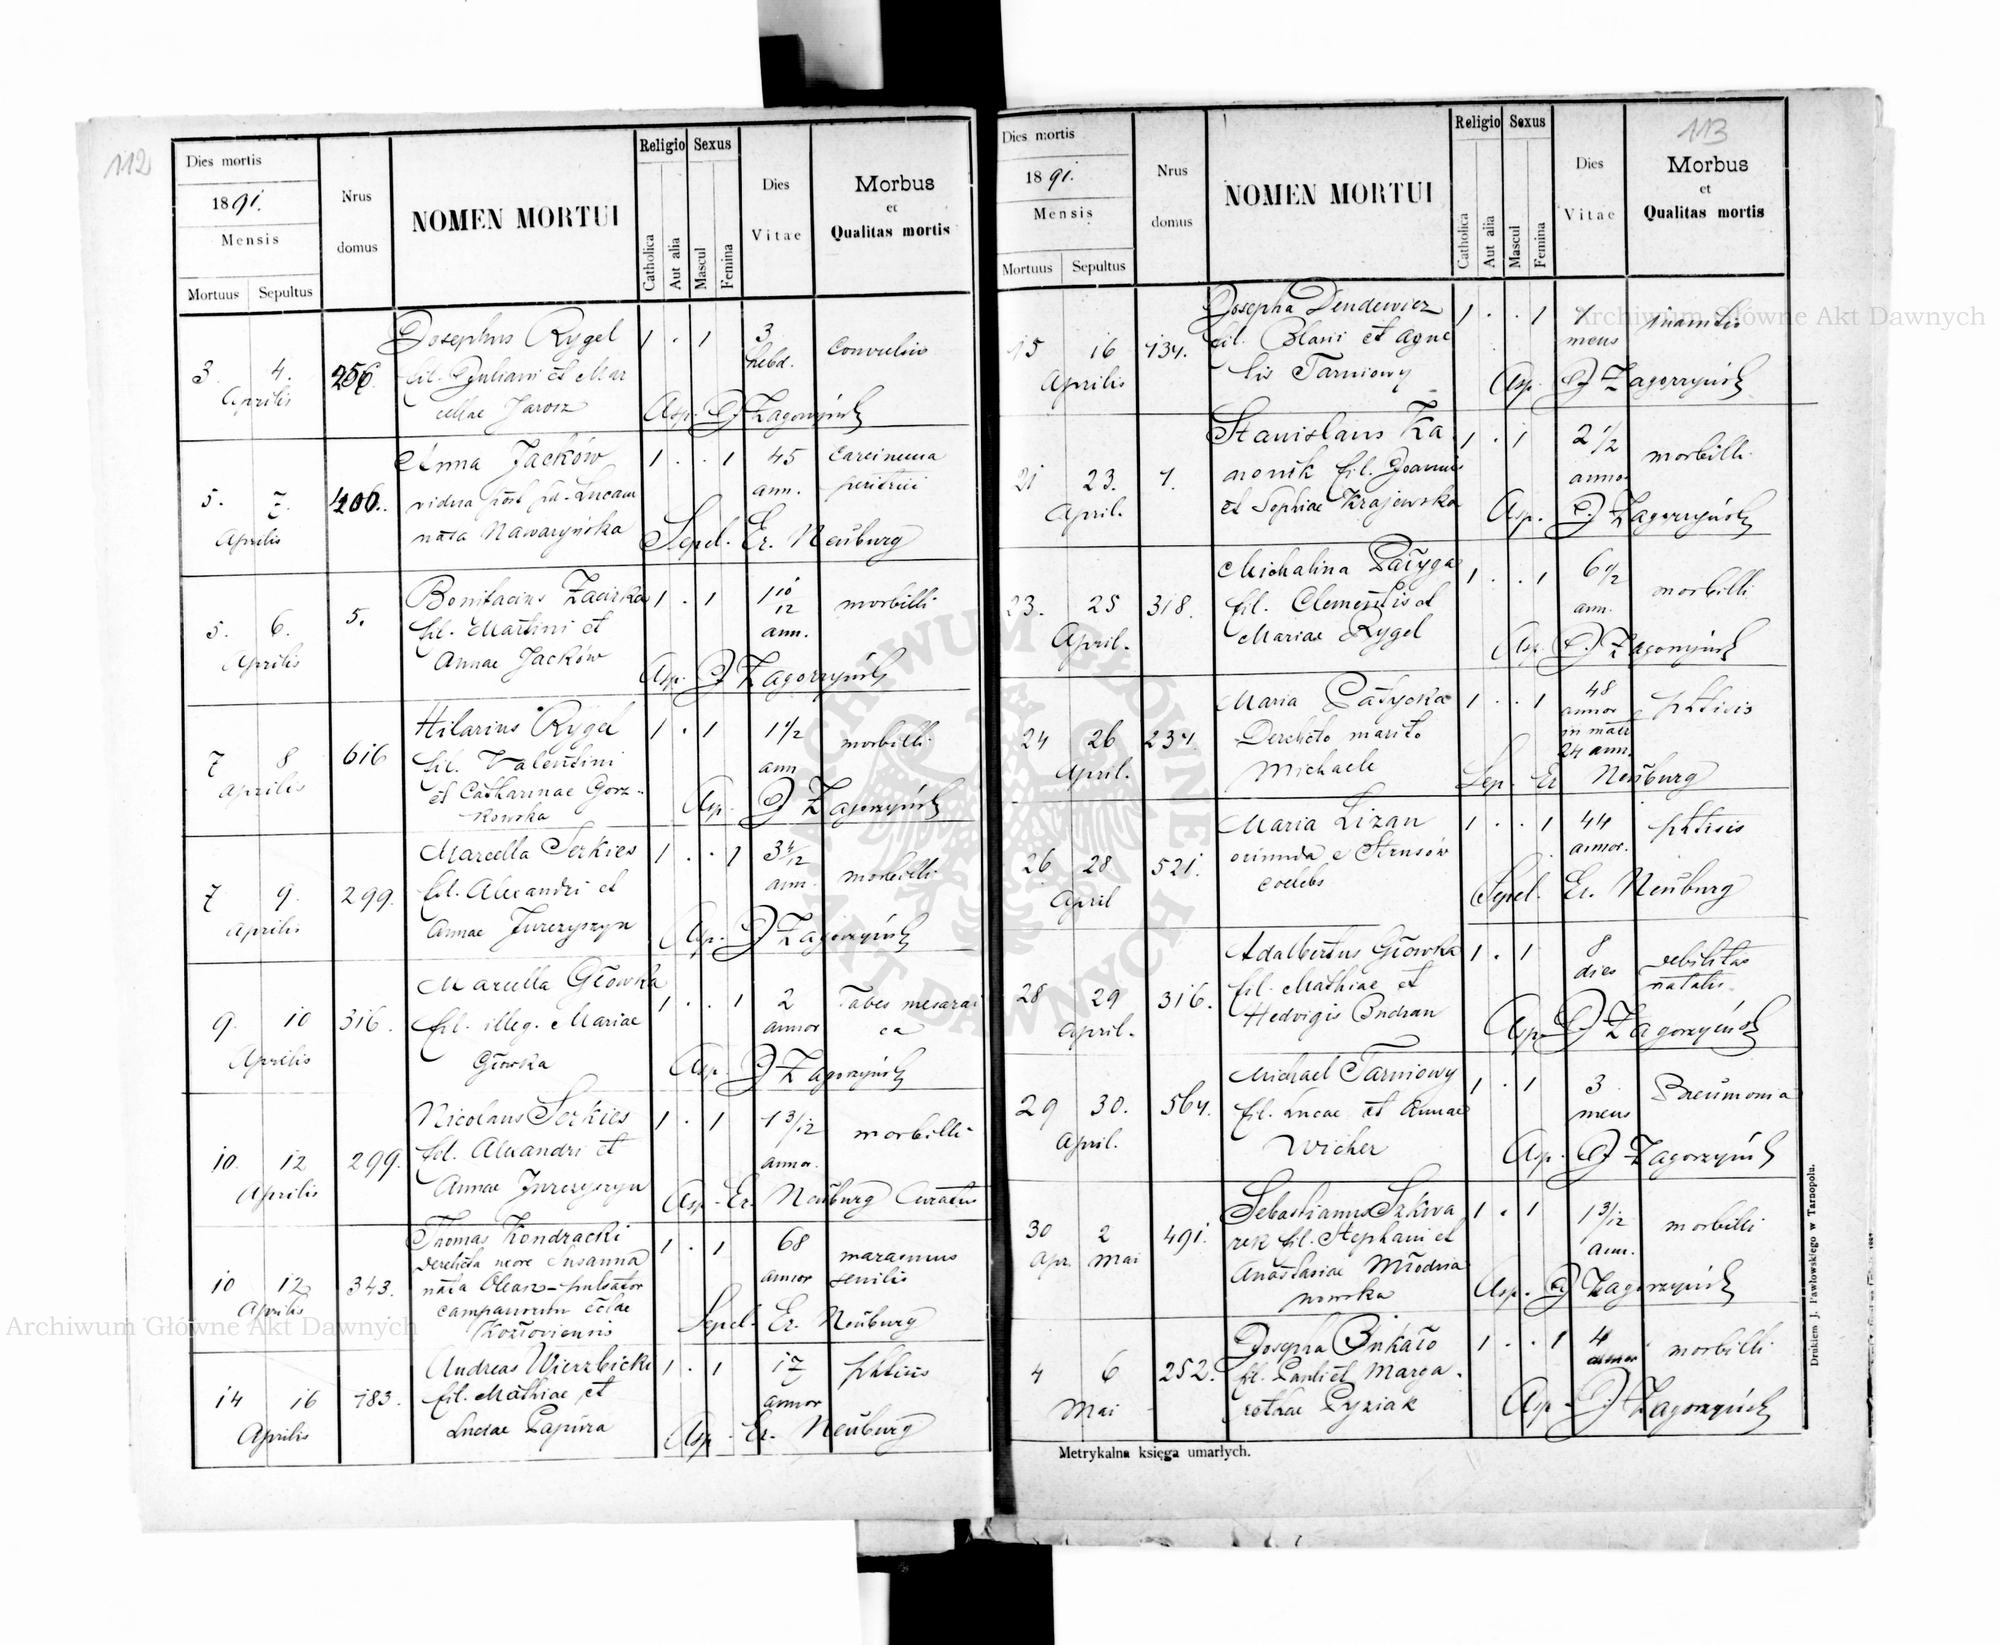 112
Dies mortis
1891.
Mensis
Mortuus Sepultus
Nrus
domus
NOMEN MORTUI
Religio
Catholica
Aut alia
Sexus
Mascul
Femina
Dies
Vitae
Morbus
et
Qualitas mortis
3. 4.
Aprilis
256.
Josephus Rygel
fil. Juliani et Mar
cellae Jarosz
1 . 1
3
hebd.
Convulsio
Asp. J Zagorzyński
5. 7.
Aprilis
406.
Anna Jacków
vidua post pd. Lucam
nata Nawaryńska
1 . . 1
45
ann.
Carcinoma
Sepel. Er. Neuburg
5. 6.
Aprilis
5.
Bonifacius
fil. Martini et
Annae Jacków
1 . 1
1 10/12
ann.
morbilli
Asp. J Zagorzyński
7 8
Aprilis
616
Hilarius Rygel
fil. Valentini
et Catharinae Gorz-
kowska
1 . 1
1 1/2
ann
morbilli
Asp. J Zagorzyński
7 9.
Aprilis
299.
Marcella Serkies
fil. Alexandri et
Annae Jurczyszyn
1 . . 1
3 4/12
ann.
morbilli
Asp. J Zagorzyński
9. 10
Aprilis
316.
Marcella Głowka
fil. illeg. Mariae
Głowka
1 . . 1
2
annor
Tabes mesarai
ca
Asp. J Zagorzyński
10. 12
Aprilis
299.
Nicolaus Serkies
fil. Alexandri et
Annae Jurczyszyn
1 . 1
1 3/12
annor.
morbilli
Asp. Er. Neuburg Curatus
10 12
Aprilis
343.
Thomas Kondracki
derelicta uxore Susanna
nata Olearz - pulsator
campanorum eclae
Kozłoviensis
1 . 1
68
annor
marasmus
senilis
Sepel. Er. Neuburg
14 16
Aprilis
183.
Andreas Wierzbicki
fil. Mathiae et
Luciae Papura
1 . 1
17
annor
phtisis
Asp. Er. Neuburg
113
Dies mortis
1891.
Mensis
Mortuus Sepultus
Nrus
domus
NOMEN MORTUI
Religio
Catholica
Aut alia
Sexus
Mascul
Femina
Dies
Vitae
Morbus
et
Qualitas mortis
15 16
Aprilis
134.
Josepha Dendewicz
fil. Blasii et Agne
tis Tarniowy
1 . . 1
1
mens
Asp. J Zagorzyński
21 23.
April.
1.
Stanislaus Ka
nonik fil. Joannis
et Sophiae Krajewska
1 . 1
2 1/2
annor
morbilli
Asp. J Zagorzyński
23. 25
April.
318.
Michalina Pałyga
fil. Clementis et
Mariae Rygel
1 . . 1
6 1/2
ann.
morbilli
Asp. J Zagorzyński
24 26
April.
234.
Maria Pałycka
Derelicto marito
Michaele
1 . . 1
48
annor
in matr
24 ann.
phtisis
Sep. Er Neuburg
26 28
April
521.
Maria Lizan
oriunda e Strusów
coelebs
1 . . 1
44
annor.
phtisis
Sepel. Er. Neuburg
28 29
April.
316.
Adalbertus Głowka
fil. Mathiae et
Hedvigis Bndran
1 . 1
8
dies
debilitas
natalis
Asp. J Zagorzyński
29 30.
April.
564.
Michael Tarniowy
fil. Lucae et Annae
Wicher
1 . 1
3
mens
Pneumonia
Asp. J Zagorzyński
30 2
Apr. Mai
491.
Sebastianus Szkwa
rek fil. Stephani et
Anastasiae Młodzia
nowska
1 . 1
1 3/12
ann.
morbilli
Asp. J Zagorzyński
4 6
Mai
252.
Josepha Binkało
fil. Pauli et Marga.
rethae Pyziak
1 . . 1
4
annor
morbilli
Asp. J Zagorzyński
Metrykalna księga umarłych.
Drukiem J. Pawłowskiego w Tarnopolu.
Archiwum Główne Akt Dawnych
Archiwum Główne Akt Dawnych
ARCHIWUM GŁÓWNE AKT DAWNYCH